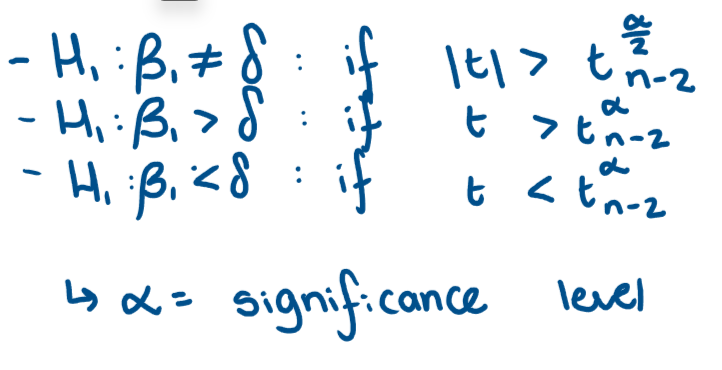 - H₁ : β₁ ≠ δ : if |t| > t^{α/2}_{n-2}
- H₁ : β₁ > δ : if t > t^{α}_{n-2}
- H₁ : β₁ < δ : if t < t^{α}_{n-2}
↳ α = significance level